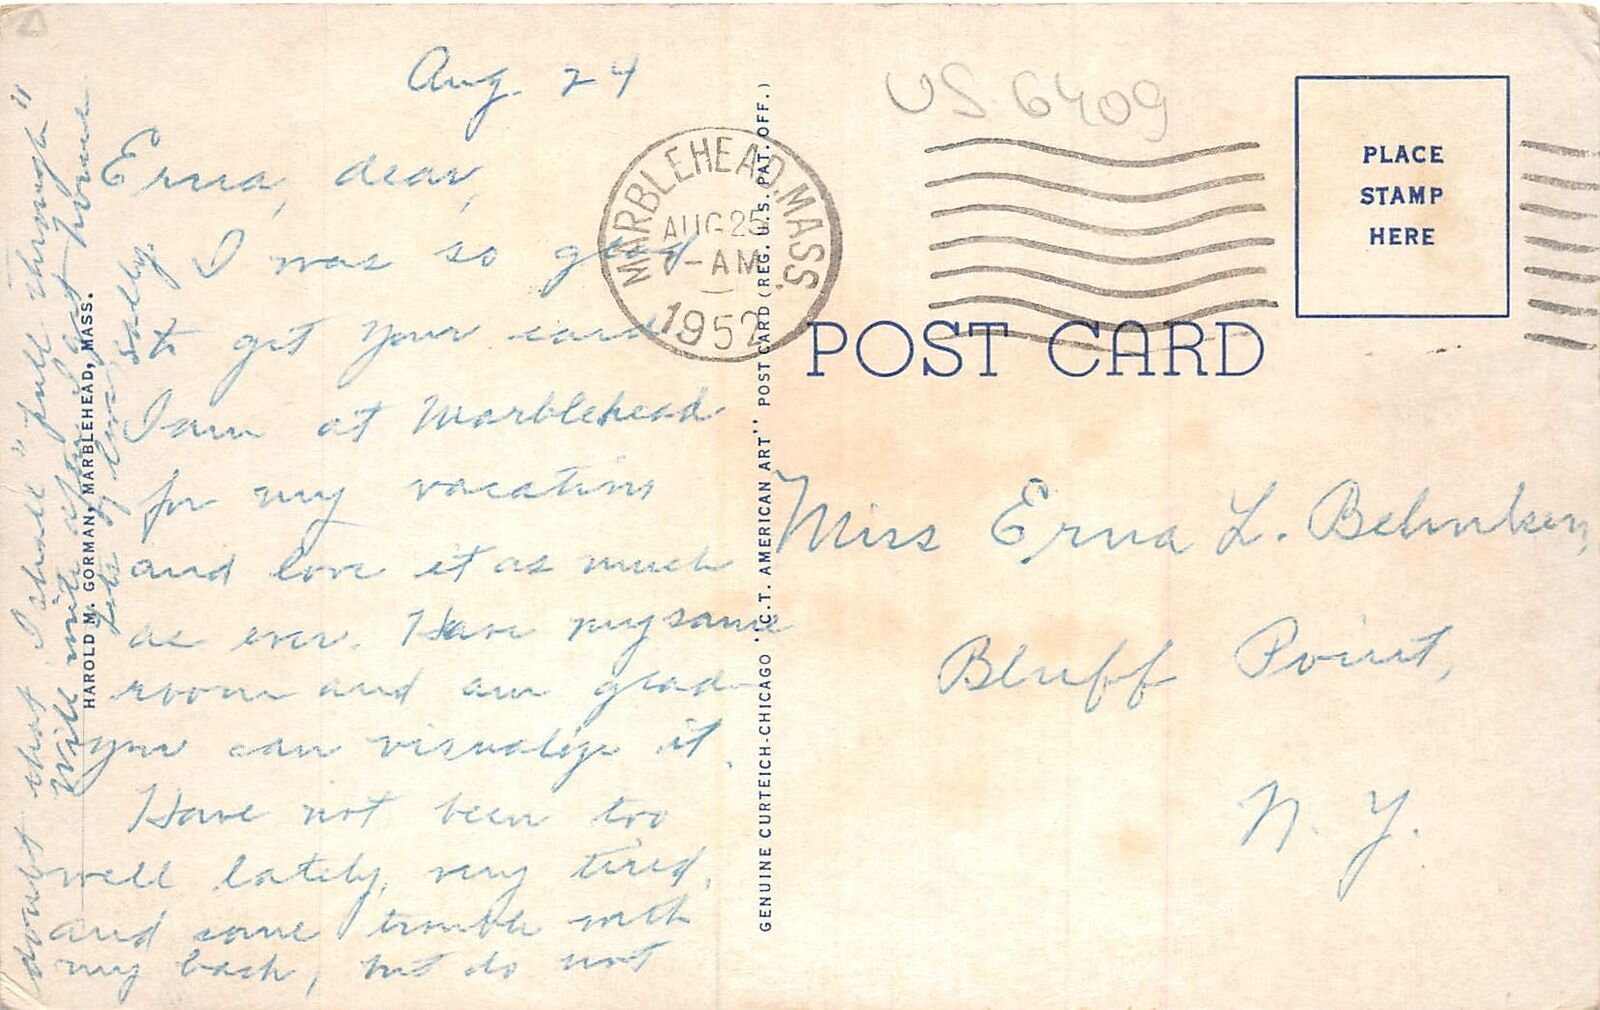 Aug. 24
Erna, dear,
I was so glad
to get your card.
I am at Marblehead
for my vacation
and love it as much
as ever. Have my same
room and am glad
you can visualize it.
Have not been too
well lately, very tired,
and some trouble with
my back, but do not
doubt that I shall "pull through"
Will write after I get home
of love, Sally.
HAROLD M. GORMAN, MARBLEHEAD, MASS.
GENUINE CURTEICH-CHICAGO "C.T. AMERICAN ART" POST CARD (REG. U.S. PAT. OFF.)
MARBLEHEAD, MASS.
AUG 25
AM
1952
US 6409
PLACE
STAMP
HERE
POST CARD
Miss Erna L.
Bluff Point,
N. Y.